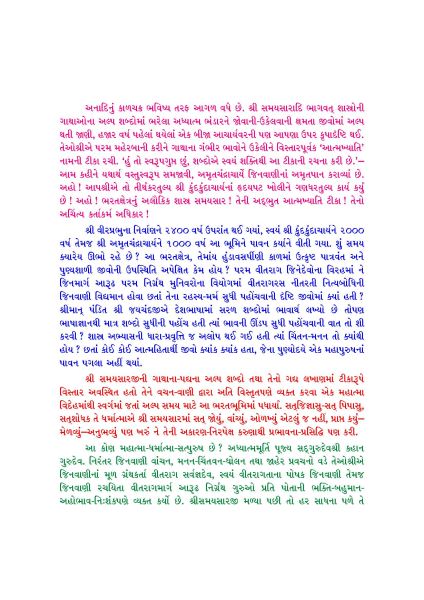 અનાદિનું કાળચક્ર ભવિષ્ય તરફ આગળ વધે છે. શ્રી સમયસારાદિ ભાગવત્ શાસ્ત્રોની
ગાથાઓના અલ્પ શબ્દોમાં ભરેલા અધ્યાત્મ ભંડારને જોવાની-ઉકેલવાની ક્ષમતા જીવોમાં અલ્પ
થતી જાણી, હજાર વર્ષ પહેલાં થયેલાં એક બીજા આચાર્યવરની પણ આપણા ઉપર કૃપાદૃષ્ટિ થઈ.
તેઓશ્રીએ પરમ મહેરબાની કરીને ગાથાના ગંભીર ભાવોને ઉકેલીને વિસ્તારપૂર્વક ‘આત્મખ્યાતિ’
નામની ટીકા રચી. ‘હું તો સ્વરૂપગુપ્ત છું, શબ્દોએ સ્વયં શક્તિથી આ ટીકાની રચના કરી છે.’–
આમ કહીને યથાર્થ વસ્તુસ્વરૂપ સમજાવી, અમૃતચંદ્રાચાર્યે જિનવાણીનાં અમૃતપાન કરાવ્યાં છે.
અહો ! આપશ્રીએ તો તીર્થંકરતુલ્ય શ્રી કુંદકુંદાચાર્યનાં હૃદયપટ ખોલીને ગણધરતુલ્ય કાર્ય કર્યું
છે ! અહો ! ભરતક્ષેત્રનું અલૌકિક શાસ્ત્ર સમયસાર ! તેની અદ્‌ભુત આત્મખ્યાતિ ટીકા ! તેનો
અચિંત્ય કર્તાકર્મ અધિકાર !
શ્રી વીરપ્રભુના નિર્વાણને ૨૪૦૦ વર્ષ ઉપરાંત થઈ ગયાં, સ્વયં શ્રી કુંદકુંદાચાર્યને ૨૦૦૦
વર્ષ તેમજ શ્રી અમૃતચંદ્રાચાર્યને ૧૦૦૦ વર્ષ આ ભૂમિને પાવન કર્યાને વીતી ગયા. શું સમય
ક્યારેય ઊભો રહે છે ? આ ભરતક્ષેત્ર, તેમાંય હુંડાવસર્પિણી કાળમાં ઉત્કૃષ્ટ પાત્રવંત અને
પુણ્યશાળી જીવોની ઉપસ્થિતિ અપેક્ષિત કેમ હોય ? પરમ વીતરાગ જિનેદેવોના વિરહમાં ને
જિનમાર્ગ આરૂઢ પરમ નિર્ગ્રંથ મુનિવરોના વિયોગમાં વીતરાગરસ નીતરતી નિત્યબોધિની
જિનવાણી વિદ્યમાન હોવા છતાં તેના રહસ્ય-મર્મ સુધી પહોંચવાની દૃષ્ટિ જીવોમાં ક્યાં હતી ?
શ્રીમાન્ પંડિત શ્રી જયચંદજીએ દેશભાષામાં સરળ શબ્દોમાં ભાવાર્થ લખ્યો છે તોપણ
ભાષાજ્ઞાનથી માત્ર શબ્દો સુધીની પહોંચ હતી ત્યાં ભાવની ઊંડપ સુધી પહોંચવાની વાત તો શી
કરવી ? શાસ્ત્ર અભ્યાસની ધારા-પ્રવૃત્તિ જ અલોપ થઈ ગઈ હતી ત્યાં ચિંતન-મનન તો ક્યાંથી
હોય ? છતાં કોઈ કોઈ આત્મહિતાર્થી જીવો ક્યાંક ક્યાંક હતા, જેના પુણ્યોદયે એક મહાપુરુષનાં
પાવન પગલા અહીં થયાં.
શ્રી સમયસારજીની ગાથાના-પદ્યના અલ્પ શબ્દો તથા તેનો ગદ્ય લખાણમાં ટીકારૂપે
વિસ્તાર અવસ્થિત હતો તેને વચન-વાણી દ્વારા અતિ વિસ્તૃતપણે વ્યક્ત કરવા એક મહાત્મા
વિદેહમાંથી સ્વર્ગમાં જતાં અલ્પ સમય માટે આ ભરતભૂમિમાં પધાર્યા. સત્‌જિજ્ઞાસુ-સત્ પિપાસુ,
સત્‌શોધક તે ધર્માત્માએ શ્રી સમયસારમાં સત્ જોયું, વાંચ્યું, ઓળખ્યું એટલું જ નહીં, પ્રાપ્ત કર્યું–
મેળવ્યું–અનુભવ્યું પણ ખરું ને તેની અકારણ-નિરપેક્ષ કરુણાથી પ્રભાવના-પ્રસિદ્ધિ પણ કરી.
આ કોણ મહાત્મા-ધર્માત્મા-સત્પુરુષ છે ? અધ્યાત્મમૂર્તિ પૂજ્ય સદ્‌ગુરુદેવશ્રી કહાન
ગુરુદેવ. નિરંતર જિનવાણી વાંચન, મનન-ચિંતવન-ઘોલન તથા જાહેર પ્રવચનો વડે તેઓશ્રીએ
જિનવાણીનાં મૂળ ગ્રંથકર્તા વીતરાગ સર્વજ્ઞદેવ, સ્વયં વીતરાગતાના પોષક જિનવાણી તેમજ
જિનવાણી રચયિતા વીતરાગમાર્ગ આરૂઢ નિર્ગ્રંથ ગુરુઓ પ્રતિ પોતાની ભક્તિ-બહુમાન-
અહોભાવ-નિઃશંકપણે વ્યક્ત કર્યો છે. શ્રીસમયસારજી મળ્યા પછી તો હર સાધના પળે તે